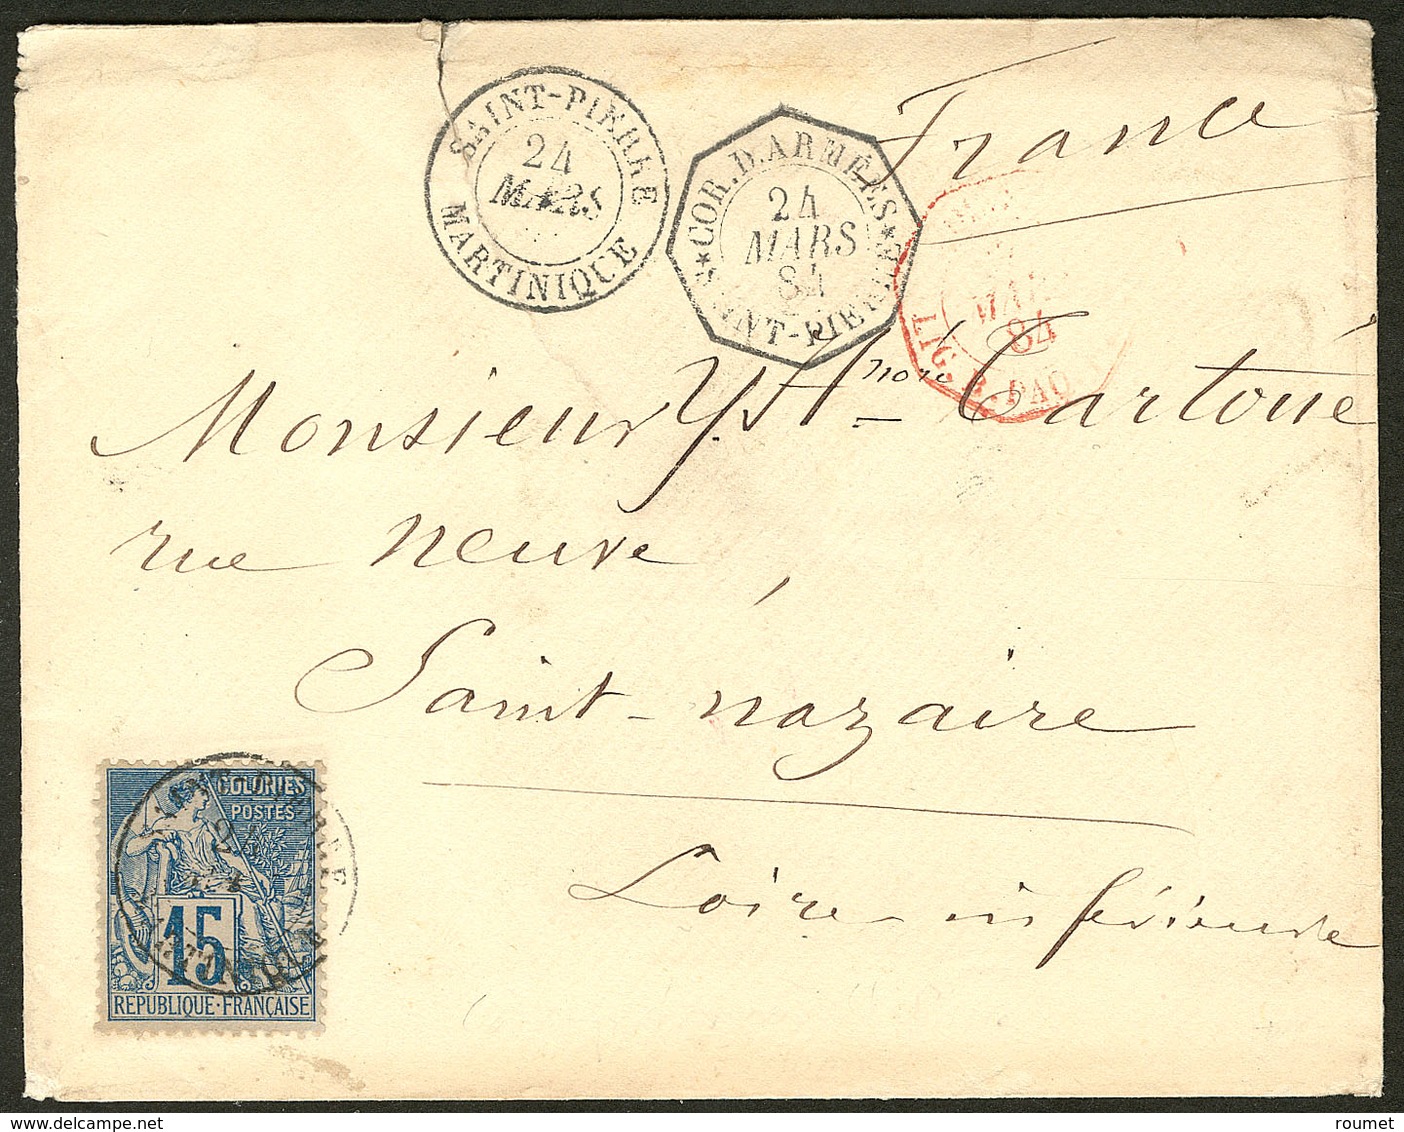 France
SAINT-PIERRE
24
MARS
MARTINIQUE
COR. D. ARMÉES
24
MARS
84
SAINT-PIERRE
MAR
84
LIG. B. PAQ
Monsieur Cartoué
rue neuve,
Saint-nazaire
Loire inférieure
COLONIES
POSTES
24
15
REPUBLIQUE·FRANÇAISE
roumet